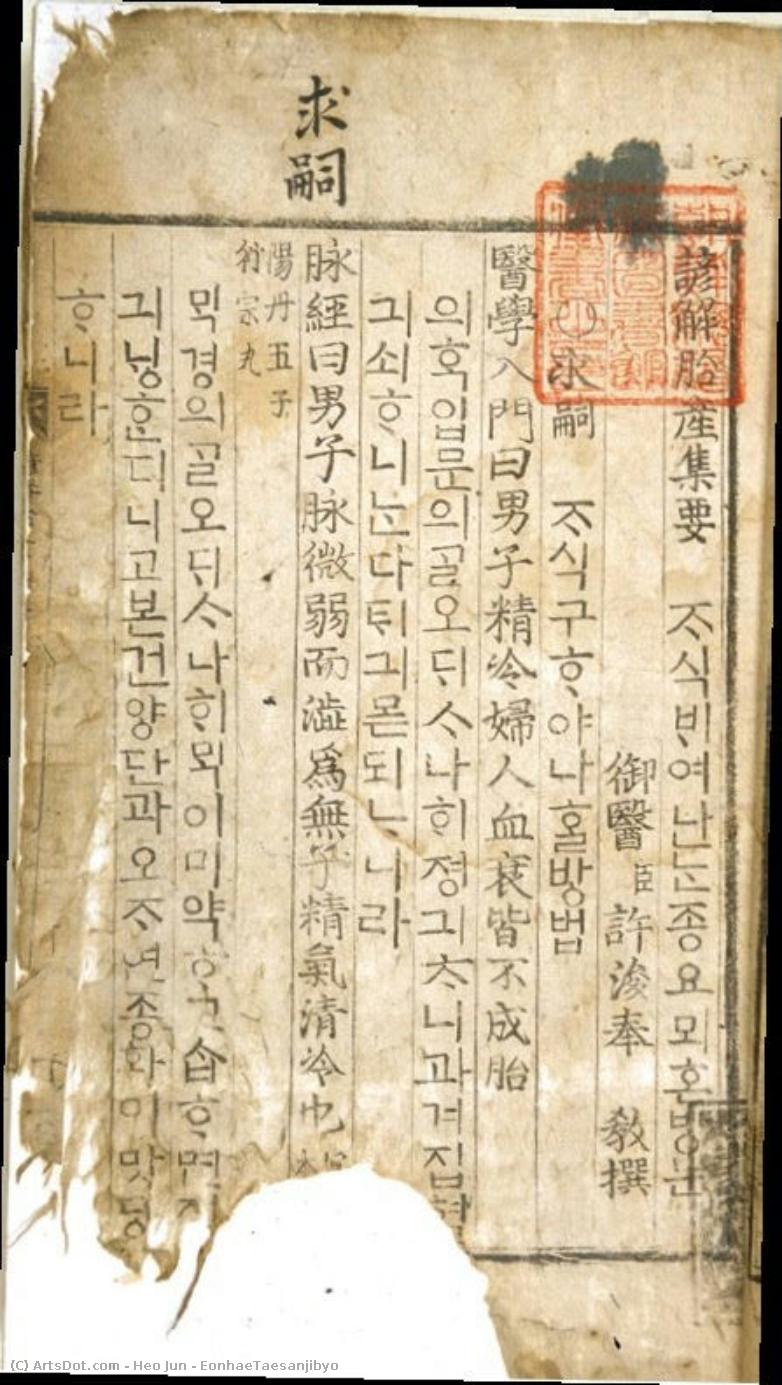 求嗣
諺解胎産集要 ᄌᆞ식ᄇᆡ여난ᄂᆞᆫ종요모혼방문
御醫臣許浚奉 敎撰
求嗣 ᄌᆞ식구ᄒᆞ야나홀방법
醫學入門曰男子精冷婦人血衰皆不成胎
의ᄒᆞᆨ입문의ᄀᆞᆯ오ᄃᆡᄉᆞ나ᄒᆡ졍긔ᄎᆞ니과겨집
긔쇠ᄒᆞ니ᄂᆞᆫ다ᄐᆡ긔몯되ᄂᆞ니라
脉經曰男子脉微弱而澁爲無子精氣清冷也
陽丹五子
衍宗丸
ᄆᆡᆨ경의ᄀᆞᆯ오ᄃᆡᄉᆞ나ᄒᆡᄆᆡᆨ이미약ᄒᆞ고ᄉᆞᆸᄒᆞ면
긔닝ᄒᆞᆫ디니고본건양단과오ᄌᆞ연종환이맛당
ᄒᆞ니라
(C) ArtsDot.com - Heo Jun - EonhaeTaesanjibyo